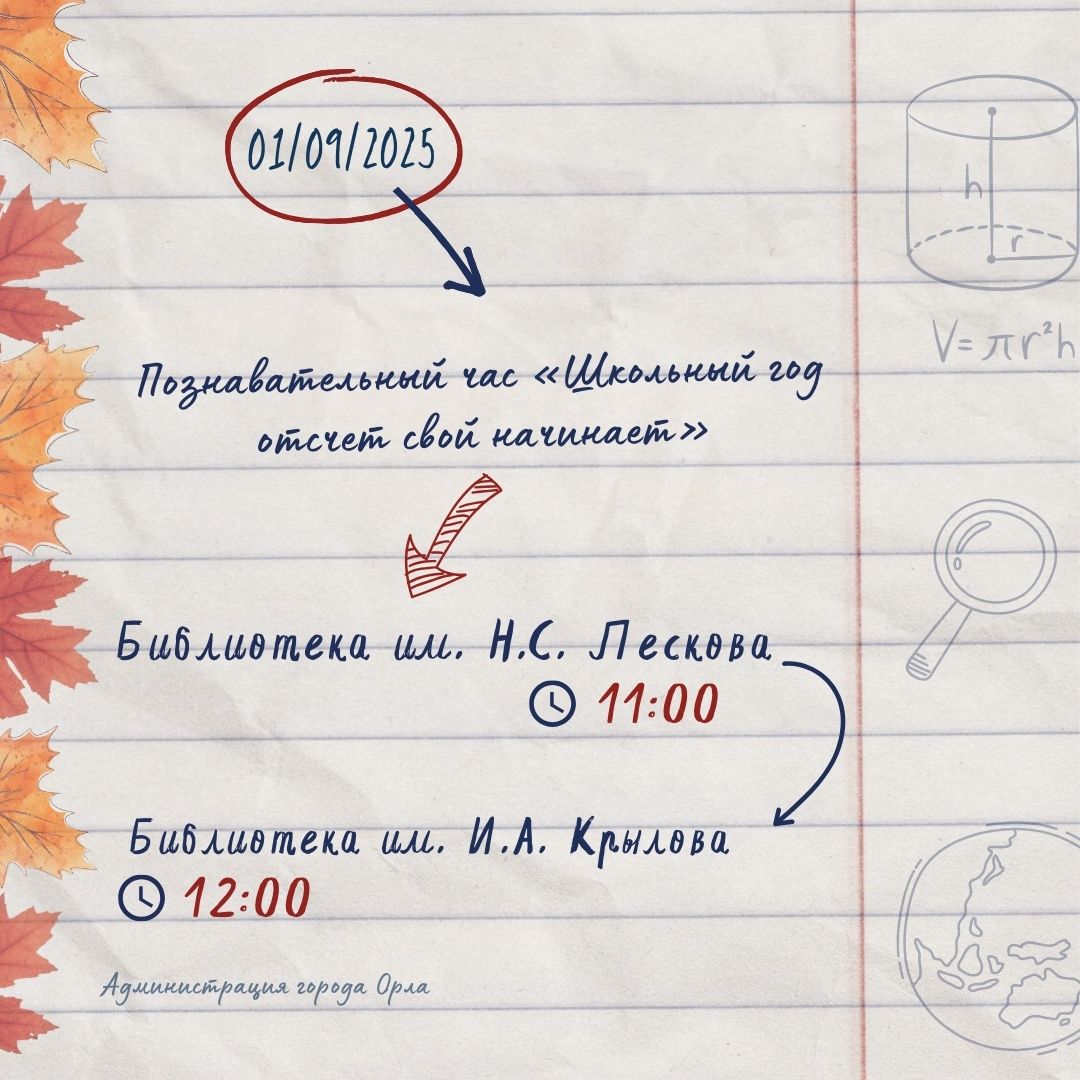 01/09/2025
h
r
V=πr²h
Познавательный час «Школьный год
отсчет свой начинает»
Библиотека им. Н.С. Лескова
11:00
Библиотека им. И.А. Крылова
12:00
Администрация города Орла